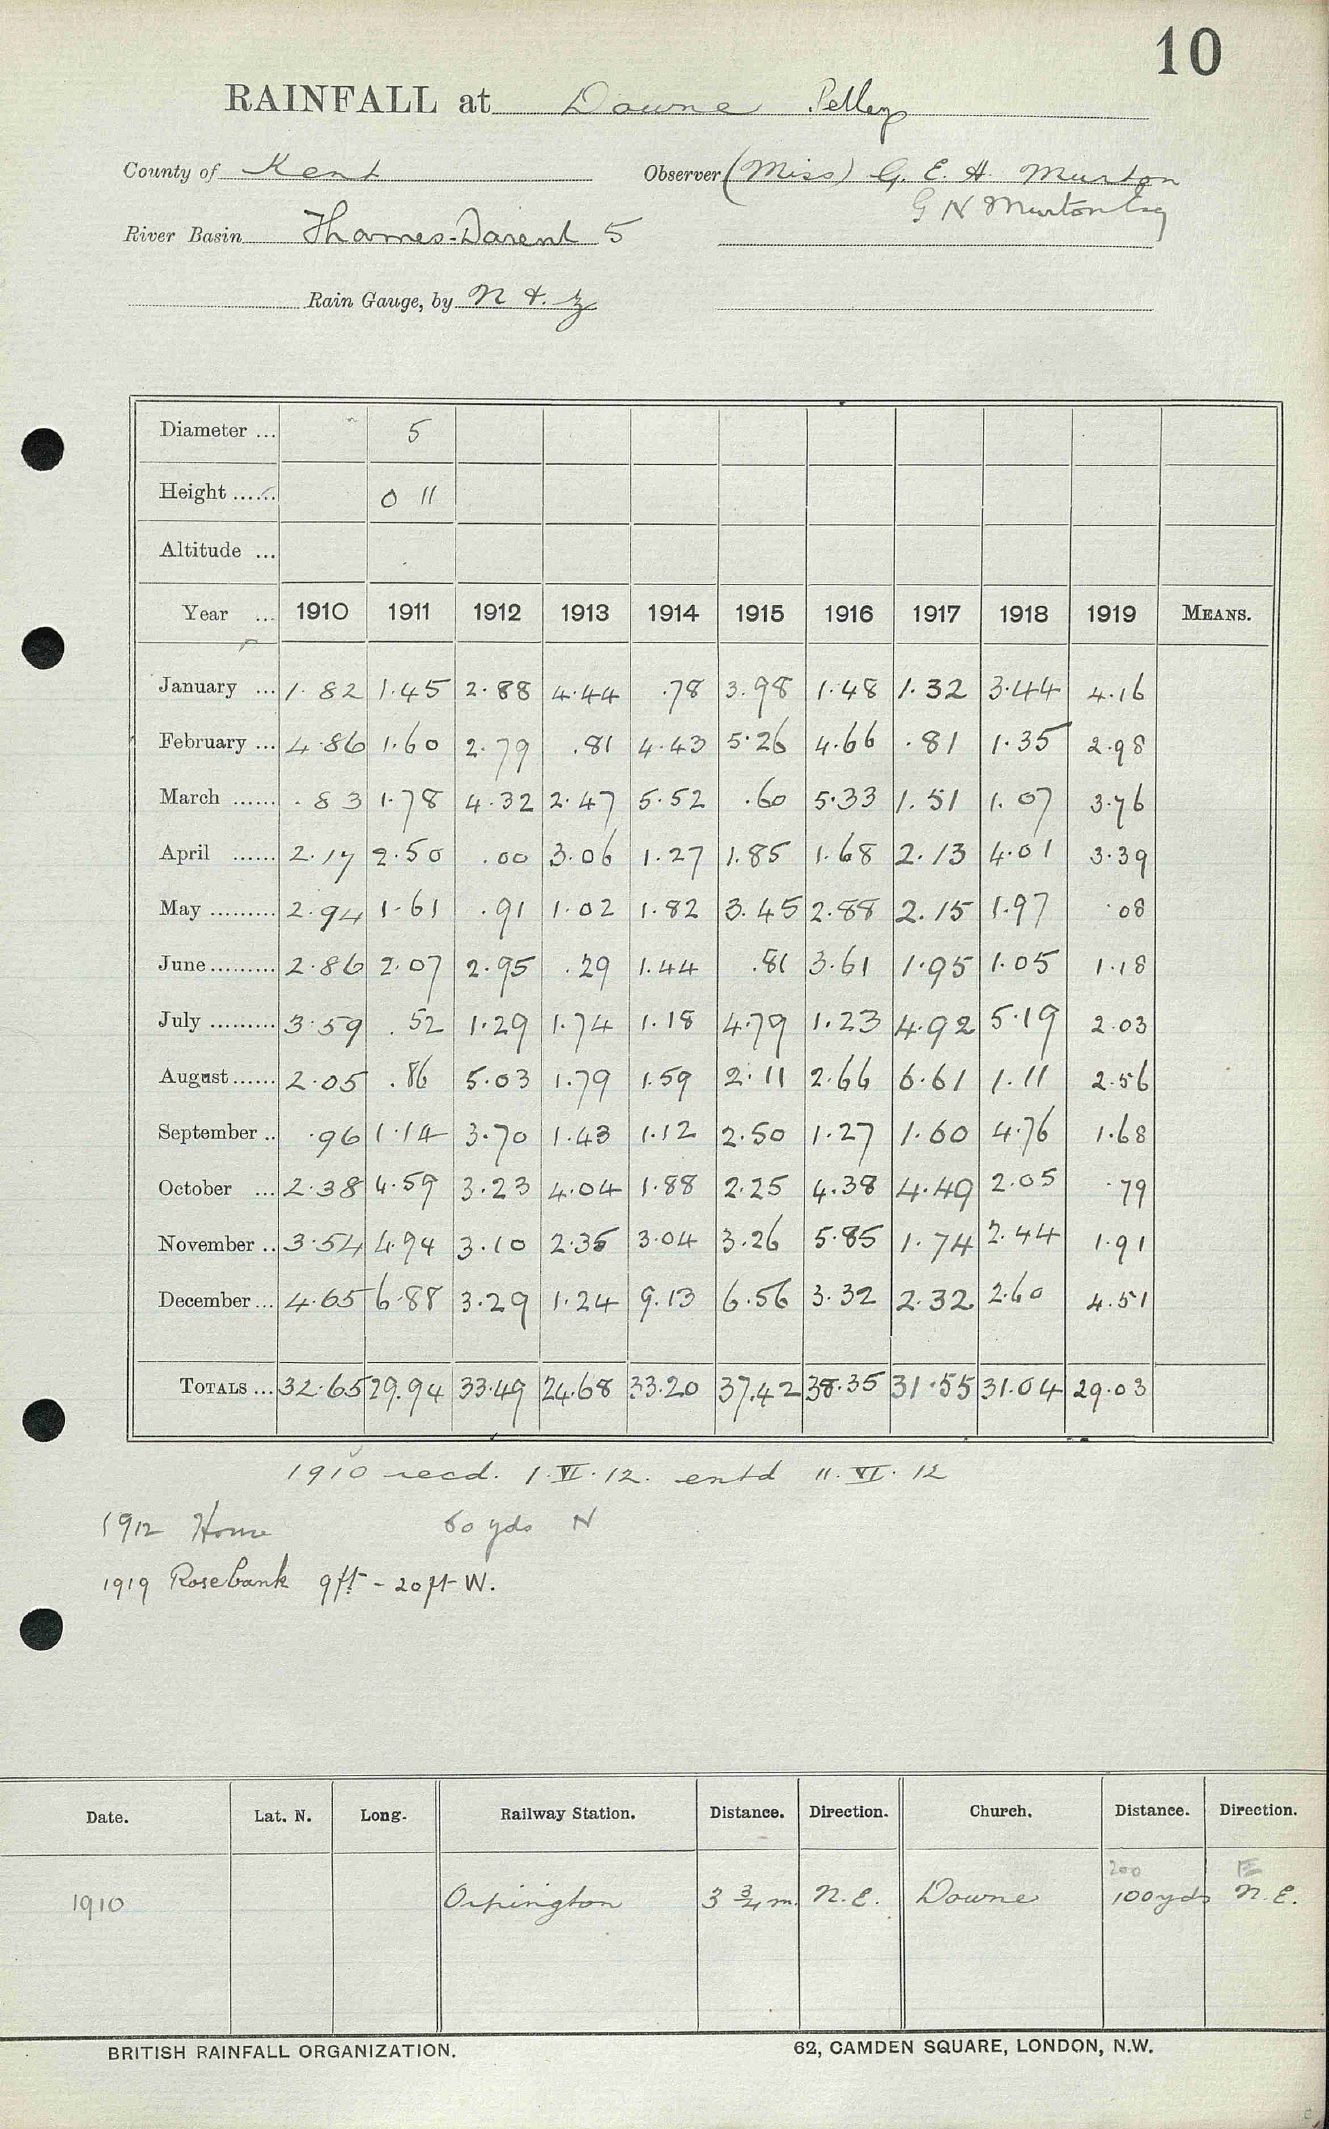 10
RAINFALL at Downe Pelley
County of Kent Observer (Miss) G. E. H. Murton
G N Murton Esq
River Basin Thames-Darent 5
Rain Gauge, by N & Z
Diameter ... 5
Height ...... 0 11
Altitude ...
Year ... 1910 1911 1912 1913 1914 1915 1916 1917 1918 1919 MEANS.
January ... 1.82 1.45 2.88 4.44 .78 3.98 1.48 1.32 3.44 4.16
February ... 4.86 1.60 2.79 .81 4.43 5.26 4.66 .81 1.35 2.98
March ...... .83 1.78 4.32 2.47 5.52 .60 5.33 1.51 1.07 3.76
April ...... 2.17 2.50 .00 3.06 1.27 1.85 1.68 2.13 4.01 3.39
May ......... 2.94 1.61 .91 1.02 1.82 3.45 2.88 2.15 1.97 .08
June ......... 2.86 2.07 2.95 .29 1.44 .81 3.61 1.95 1.05 1.18
July ......... 3.59 .52 1.29 1.74 1.18 4.79 1.23 4.92 5.19 2.03
August ...... 2.05 .86 5.03 1.79 1.59 2.11 2.66 6.61 1.11 2.56
September .. .96 1.14 3.70 1.43 1.12 2.50 1.27 1.60 4.76 1.68
October ... 2.38 4.59 3.23 4.04 1.88 2.25 4.38 4.49 2.05 .79
November .. 3.54 4.94 3.10 2.35 3.04 3.26 5.85 1.74 2.44 1.91
December ... 4.65 6.88 3.29 1.24 9.13 6.56 3.32 2.32 2.60 4.51
TOTALS ... 32.65 29.94 33.49 24.68 33.20 37.42 38.35 31.55 31.04 29.03
1910 recd. 1.VI.12. entd 11.VI.12
1912 House 60 yds N
1919 Rosebank 9ft - 20ft W.
Date. Lat. N. Long. Railway Station. Distance. Direction. Church. Distance. Direction.
200 E
1910 Orpington 3 3/4 m. N.E. Downe 100 yds N.E.
BRITISH RAINFALL ORGANIZATION. 62, CAMDEN SQUARE, LONDON, N.W.